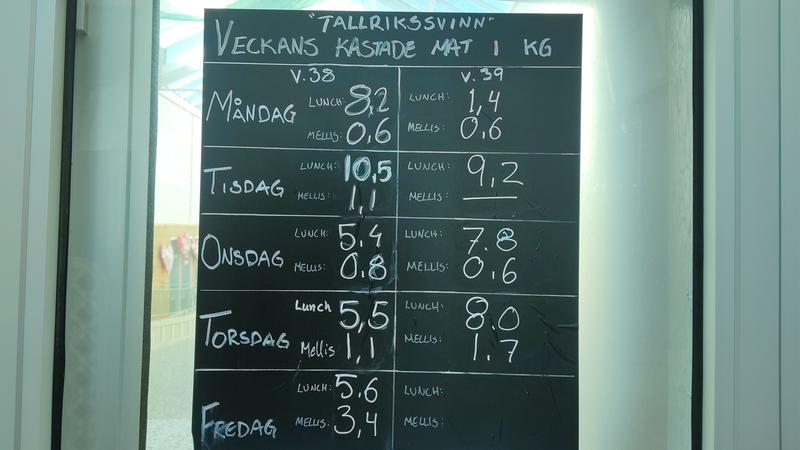 "TALLRIKSSVINN"
VECKANS KASTADE MAT I KG
V.38 V.39
MÅNDAG LUNCH: 8,2 LUNCH: 1,4
MELLIS: 0,6 MELLIS: 0,6
TISDAG LUNCH: 10,5 LUNCH: 9,2
MELLIS: 1,1 MELLIS: —
ONSDAG LUNCH: 5.4 LUNCH: 7.8
MELLIS: 0.8 MELLIS: 0,6
TORSDAG Lunch 5,5 LUNCH: 8.0
Mellis 1,1 MELLIS: 1.7
FREDAG LUNCH: 5.6 LUNCH:
MELLIS: 3,4 MELLIS: